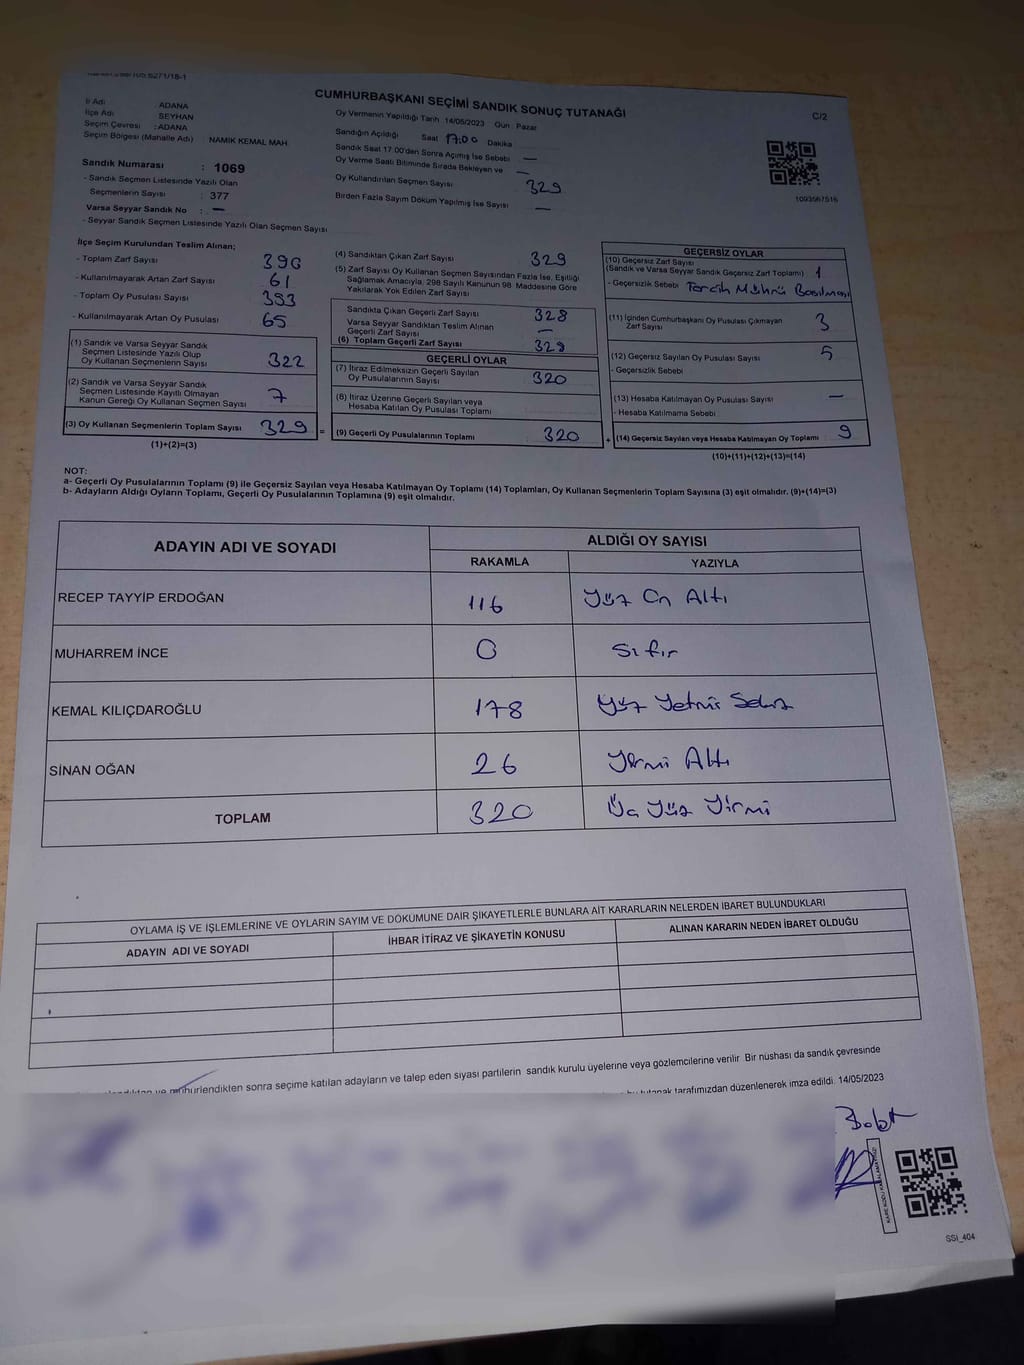 CUMHURBAŞKANI SEÇİMİ SANDIK SONUÇ TUTANAĞI
C/2
İl Adı : ADANA
İlçe Adı : SEYHAN
Seçim Çevresi : ADANA
Seçim Bölgesi (Mahalle Adı) : NAMIK KEMAL MAH.
Oy Vermenin Yapıldığı Tarih 14/05/2023 Gün : Pazar
Sandığın Açıldığı Saat 17:00 Dakika
Sandık Saat 17.00'den Sonra Açılmış İse Sebebi —
Oy Verme Saati Bitiminde Sırada Bekleyen ve —
Oy Kullandırılan Seçmen Sayısı 329
Birden Fazla Sayım Döküm Yapılmış İse Sayısı —
1093567516
Sandık Numarası : 1069
- Sandık Seçmen Listesinde Yazılı Olan
Seçmenlerin Sayısı : 377
Varsa Seyyar Sandık No : —
- Seyyar Sandık Seçmen Listesinde Yazılı Olan Seçmen Sayısı
İlçe Seçim Kurulundan Teslim Alınan;
- Toplam Zarf Sayısı 396
- Kullanılmayarak Artan Zarf Sayısı 61
- Toplam Oy Pusulası Sayısı 393
- Kullanılmayarak Artan Oy Pusulası 65
(1) Sandık ve Varsa Seyyar Sandık
Seçmen Listesinde Yazılı Olup
Oy Kullanan Seçmenlerin Sayısı 322
(2) Sandık ve Varsa Seyyar Sandık
Seçmen Listesinde Kayıtlı Olmayan
Kanun Gereği Oy Kullanan Seçmen Sayısı 7
(3) Oy Kullanan Seçmenlerin Toplam Sayısı 329 =
(1)+(2)=(3)
(4) Sandıktan Çıkan Zarf Sayısı 329
(5) Zarf Sayısı Oy Kullanan Seçmen Sayısından Fazla İse, Eşitliği
Sağlamak Amacıyla, 298 Sayılı Kanunun 98. Maddesine Göre
Yakılarak Yok Edilen Zarf Sayısı
Sandıkta Çıkan Geçerli Zarf Sayısı 328
Varsa Seyyar Sandıktan Teslim Alınan
Geçerli Zarf Sayısı —
(6) Toplam Geçerli Zarf Sayısı 329
GEÇERLİ OYLAR
(7) İtiraz Edilmeksizin Geçerli Sayılan
Oy Pusulalarının Sayısı 320
(8) İtiraz Üzerine Geçerli Sayılan veya
Hesaba Katılan Oy Pusulası Toplamı
(9) Geçerli Oy Pusulalarının Toplamı 320 +
GEÇERSİZ OYLAR
(10) Geçersiz Zarf Sayısı
(Sandık ve Varsa Seyyar Sandık Geçersiz Zarf Toplamı) 1
- Geçersizlik Sebebi Tercih Mührü Basılması
(11) İçinden Cumhurbaşkanı Oy Pusulası Çıkmayan
Zarf Sayısı 3
(12) Geçersiz Sayılan Oy Pusulası Sayısı 5
- Geçersizlik Sebebi
(13) Hesaba Katılmayan Oy Pusulası Sayısı —
- Hesaba Katılmama Sebebi
(14) Geçersiz Sayılan veya Hesaba Katılmayan Oy Toplamı 9
(10)+(11)+(12)+(13)=(14)
NOT:
a- Geçerli Oy Pusulalarının Toplamı (9) ile Geçersiz Sayılan veya Hesaba Katılmayan Oy Toplamı (14) Toplamları, Oy Kullanan Seçmenlerin Toplam Sayısına (3) eşit olmalıdır. (9)+(14)=(3)
b- Adayların Aldığı Oyların Toplamı, Geçerli Oy Pusulalarının Toplamına (9) eşit olmalıdır.
ADAYIN ADI VE SOYADI
ALDIĞI OY SAYISI
RAKAMLA YAZIYLA
RECEP TAYYİP ERDOĞAN 116 Yüz On Altı
MUHARREM İNCE 0 Sıfır
KEMAL KILIÇDAROĞLU 178 Yüz Yetmiş Sekiz
SİNAN OĞAN 26 Yirmi Altı
TOPLAM 320 Üç Yüz Yirmi
OYLAMA İŞ VE İŞLEMLERİNE VE OYLARIN SAYIM VE DÖKÜMÜNE DAİR ŞİKAYETLERLE BUNLARA AİT KARARLARIN NELERDEN İBARET BULUNDUKLARI
ADAYIN ADI VE SOYADI
İHBAR İTİRAZ VE ŞİKAYETİN KONUSU
ALINAN KARARIN NEDEN İBARET OLDUĞU
mühürlendikten sonra seçime katılan adayların ve talep eden siyasi partilerin sandık kurulu üyelerine veya gözlemcilerine verilir. Bir nüshası da sandık çevresinde
bu tutanak tarafımızdan düzenlenerek imza edildi. 14/05/2023
SSI_404